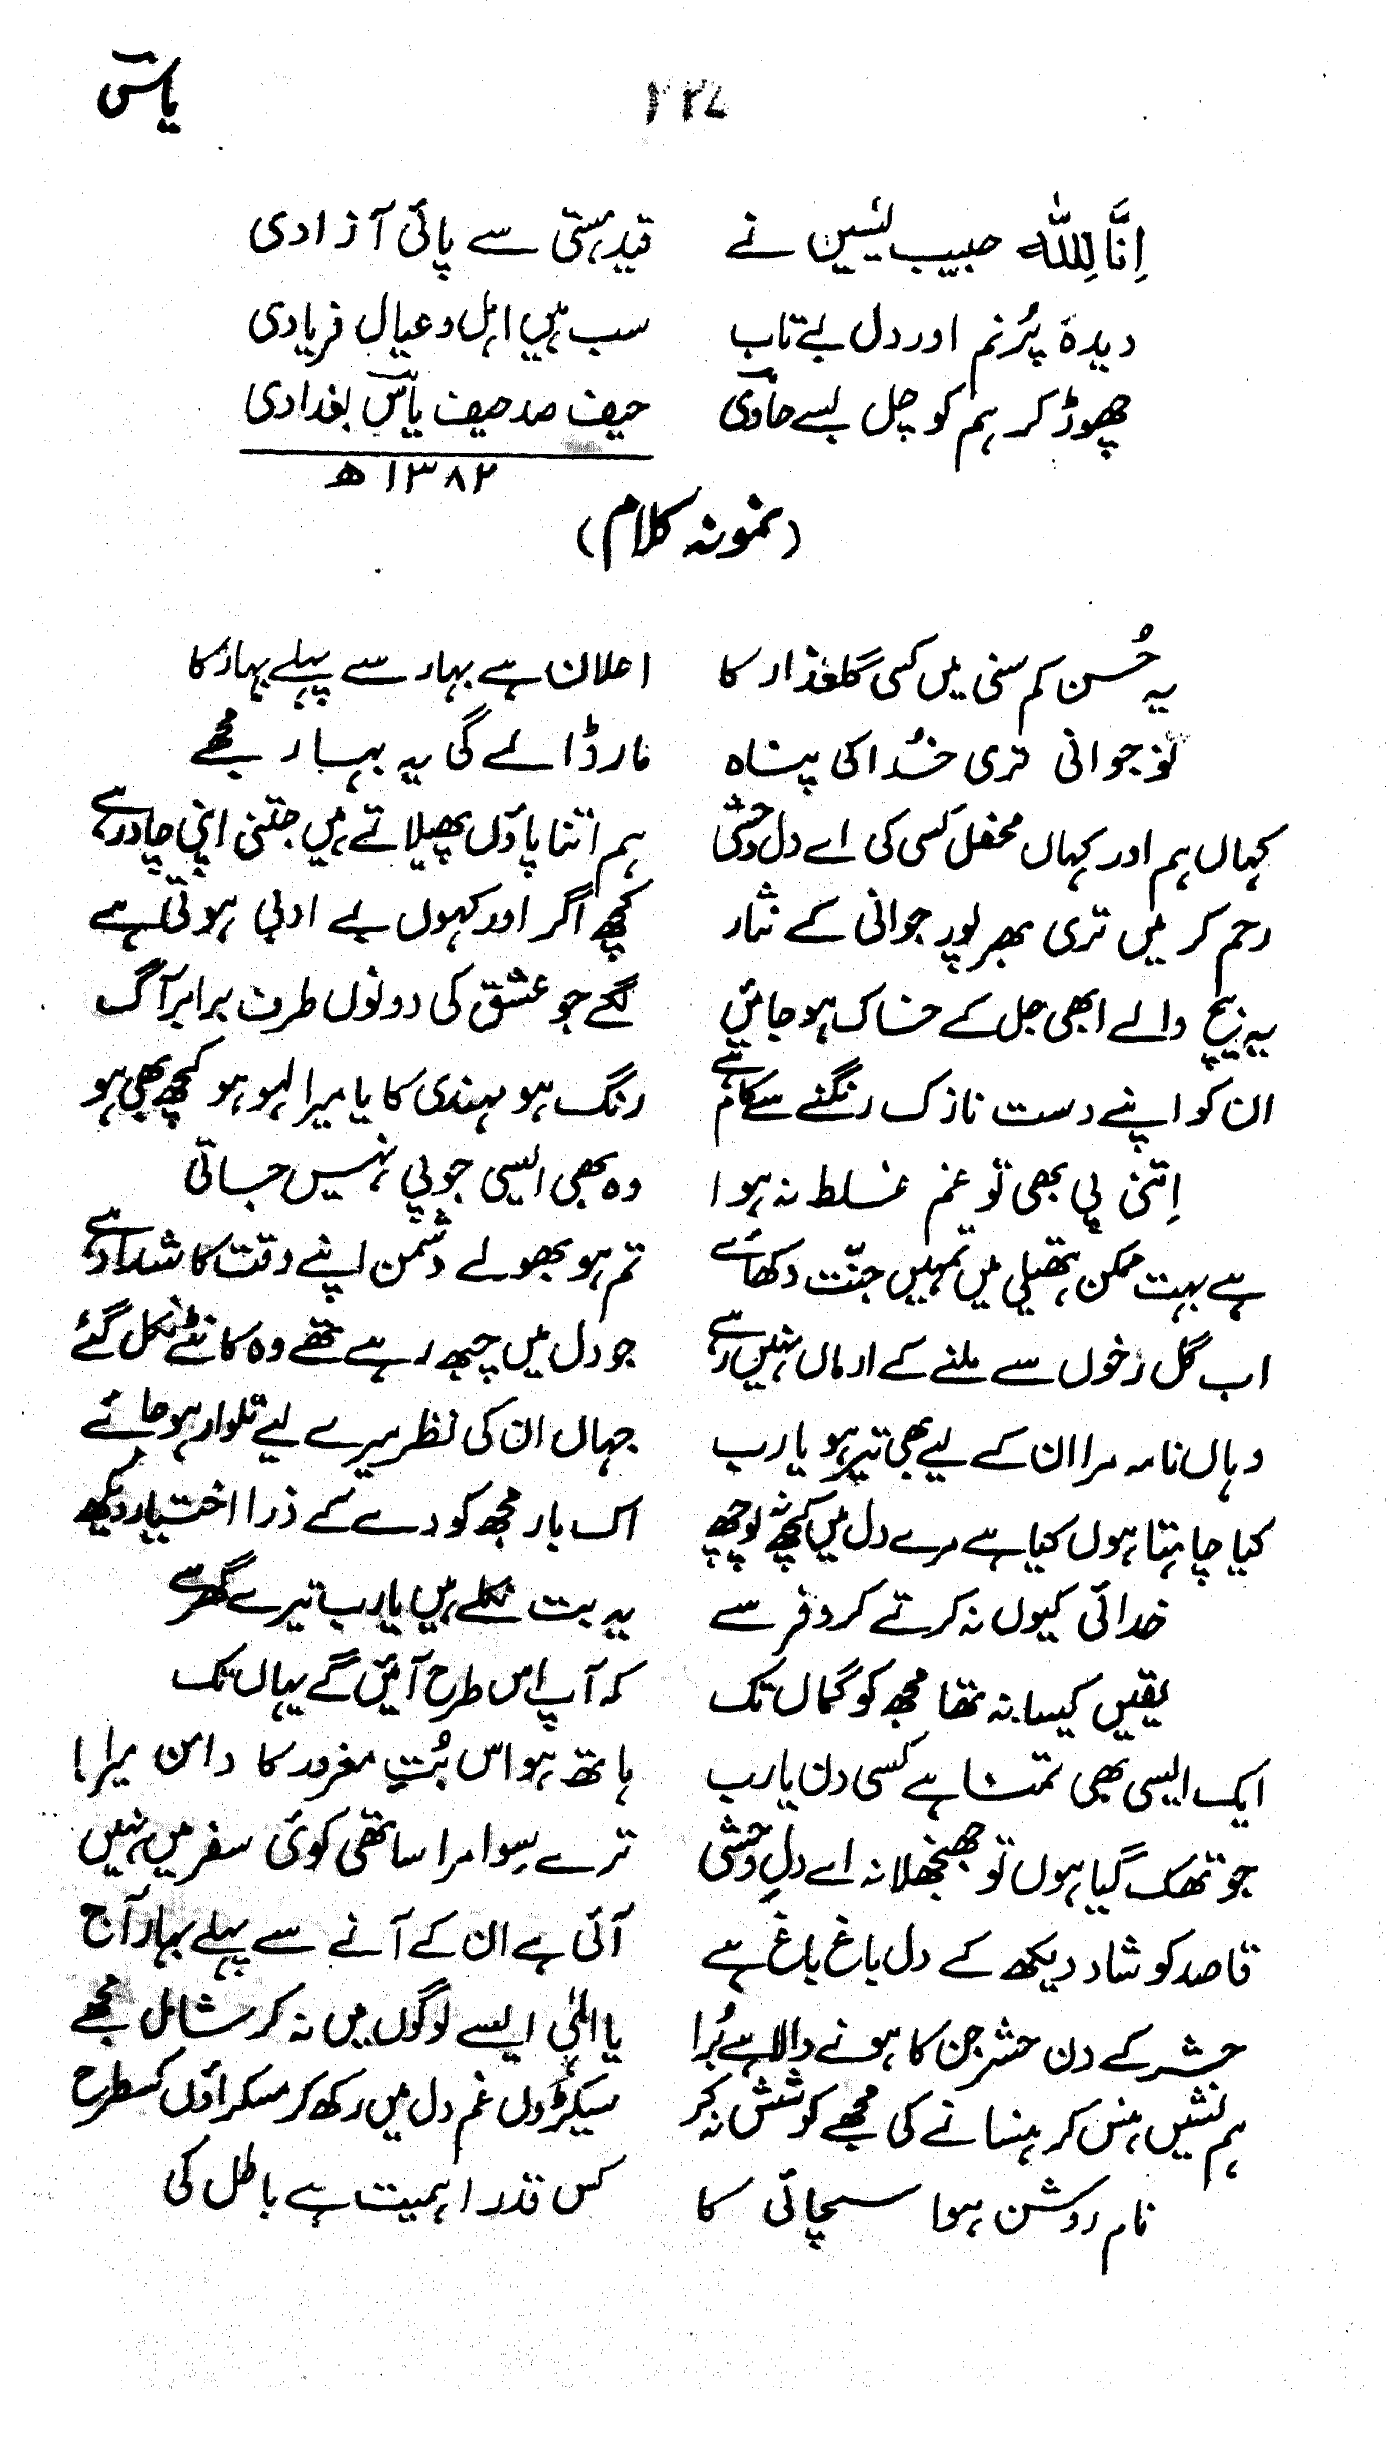 ۲۲۷ یاسؔ
اِنَّا لِلّٰہ حبیب یٰسیں نے قیدِ ہستی سے پائی آزادی
دیدۂ پُرنم اور دل بے تاب سب ہیں اہل و عیال فریادی
چھوڑ کر ہم کو چل بسے حاویؔ حیف صد حیف یاسؔ بغدادی
۱۳۸۲ ھ
(نمونہ کلام)
یہ حُسن کم سنی میں کسی گلعذار کا اعلان ہے بہار سے پہلے بہار کا
نوجوانی تری خدا کی پناہ مار ڈالے گی یہ بہار مجھے
کہاں ہم اور کہاں محفل کسی کی اے دل وحشی ہم اتنا پاؤں پھیلاتے ہیں جتنی اپنی چادر ہے
رحم کر میں تری بھرپور جوانی کے نثار کچھ اگر اور کہوں بے ادبی ہوتی ہے
یہ بیچ والے ابھی جل کے خاک ہو جائیں لگے جو عشق کی دونوں طرف برابر آگ
ان کو اپنے دست نازک رنگنے سے کام ہے رنگ ہو مہندی کا یا میرا لہو ہو کچھ بھی ہو
اِتنی پی بھی تو غم غلط نہ ہوا وہ بھی ایسی جو پی نہیں جاتی
ہے بہت ممکن ہتھیلی میں تمہیں جنّت دکھائے تم ہو بھولے دشمن اپنے وقت کا شداد ہے
اب گل رخوں سے ملنے کے ارماں نہیں رہے جو دل میں چبھ رہے تھے وہ کانٹے نکل گئے
وہاں نامہ مرا ان کے لیے بھی تیر ہو یارب جہاں ان کی نظر میرے لیے تلوار ہو جائے
کیا چاہتا ہوں کیا ہے مرے دل میں کچھ نہ پوچھ اک بار مجھ کو دے کے ذرا اختیار دیکھ
خدائی کیوں نہ کرتے کر و فر سے یہ بت نکلے ہیں یارب تیرے گھر سے
یقیں کیسا نہ تھا مجھ کو گماں تک کہ آپ اس طرح آئیں گے یہاں تک
ایک ایسی بھی تمنا ہے کسی دن یارب ہاتھ ہو اس بُتِ مغرور کا دامن میرا
جو تھک گیا ہوں تو جھنجھلا نہ اے دلِ وحشی ترے سِوا مرا ساتھی کوئی سفر میں نہیں
قاصد کو شاد دیکھ کے دل باغ باغ ہے آئی ہے ان کے آنے سے پہلے بہار آج
حشر کے دن حشر جن کا ہونے والا ہے بُرا یا الٰہی ایسے لوگوں میں نہ کر شامل مجھے
ہم نشیں ہنس کر ہنسانے کی مجھے کوشش نہ کر سیکڑوں غم دل میں رکھ کر مسکراؤں کسطرح
نام روشن ہوا سچائی کا کس قدر اہمیت ہے باطل کی